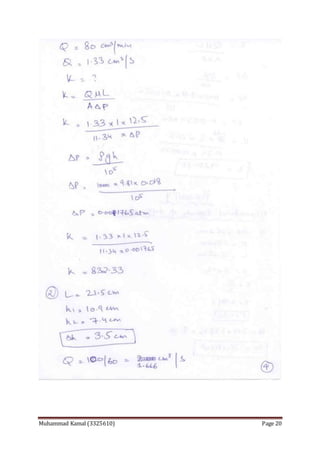 Q = 80 cm³/min
Q = 1.33 cm³/s
K = ?
K = QML
AΔP
K = 1.33 x 1 x 12.5
11.34 x ΔP
ΔP = ρgh
10⁵
ΔP = 1000 x 9.81 x 0.018
10⁵
ΔP = 0.001765 atm
K = 1.33 x 1 x 12.5
11.34 x 0.001765
K = 832.33
② L = 23.5 cm
h₁ = 10.9 cm
h₂ = 7.4 cm
Δh = 3.5 cm
Q = 100/60 = cm³/s
1.666
Muhammad Kamal (3325610) Page 20